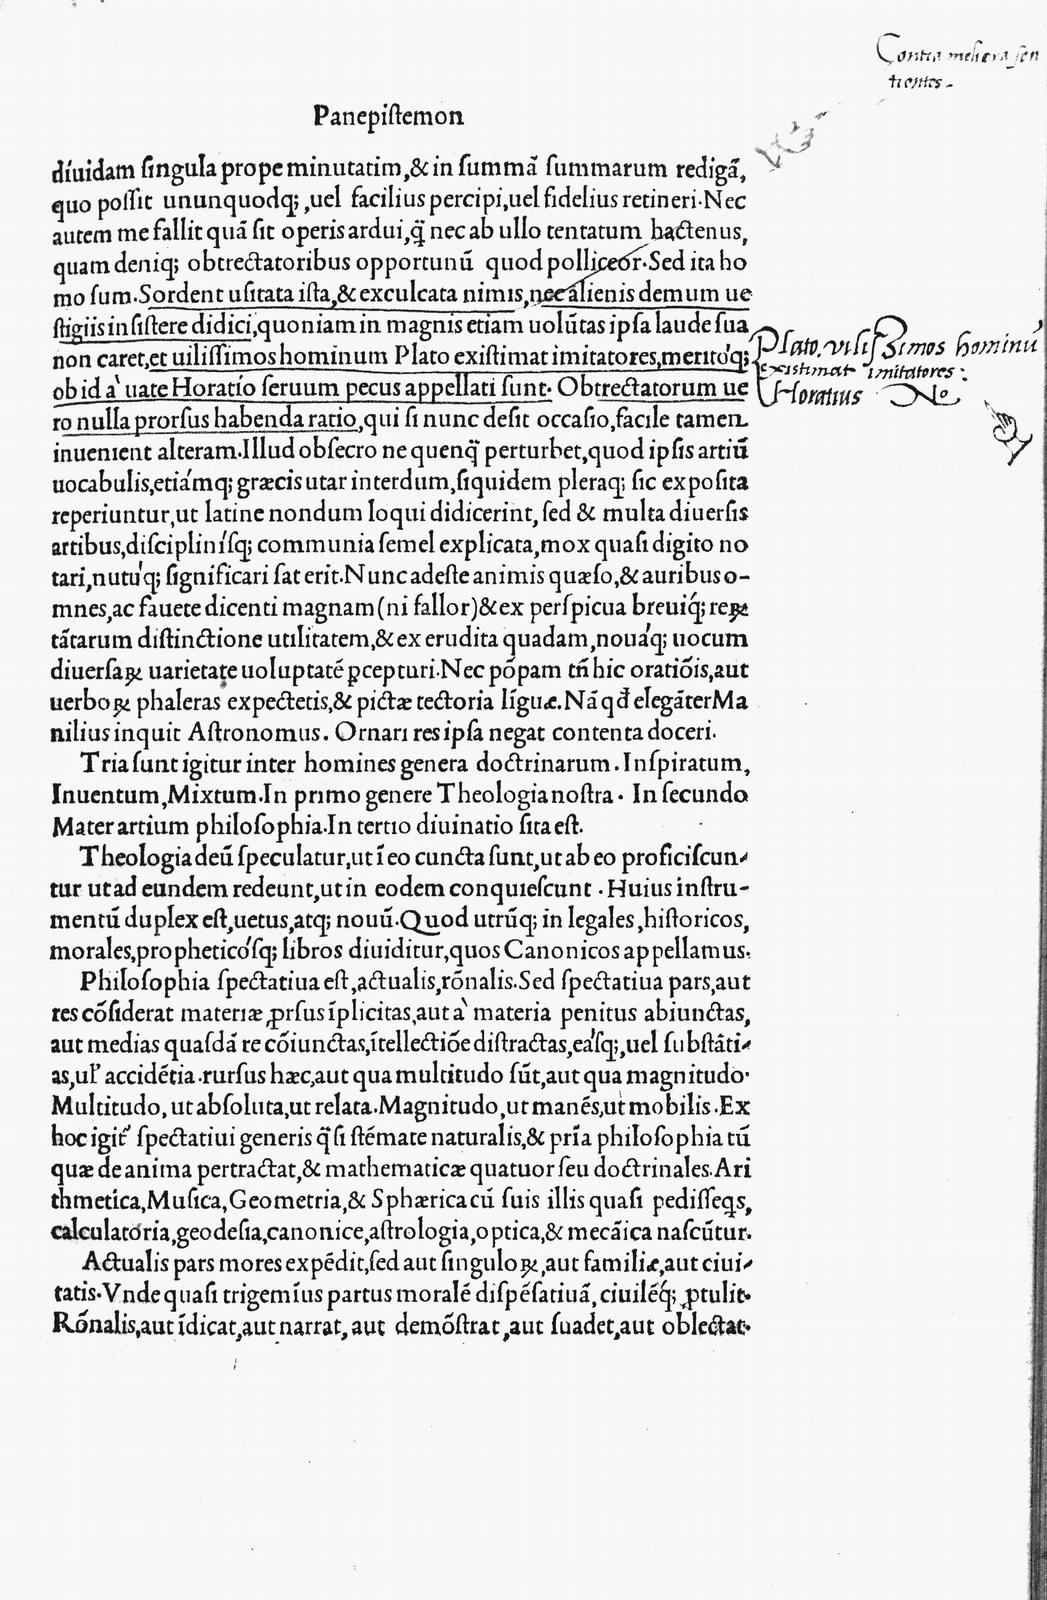 Contra meliora sen
tientes.
Panepiſtemon
díuidam ſingula prope minutatim,& in ſummã ſummarum redigã,
quo poſſit ununquodq; ,uel facilius percipi,uel fidelius retineri·Nec
autem me fallit quã ſit operis ardui,q̃ nec ab ullo tentatum hactenus,
quam deniq; obtrectatoribus opportunũ quod polliceor·Sed ita ho
mo ſum·Sordent uſitata iſta,& exculcata nimis,nec alienis demum ue
ſtigiis inſiſtere didici,quoniam in magnis etiam uolũtas ipſa laude ſua
non caret,et uiliſſimos hominum Plato exiſtimat imitatores,merito'q;
ob id a' uate Horatio ſeruum pecus appellati ſunt· Obtrectatorum ue
ro nulla prorſus habenda ratio,qui ſi nunc deſit occaſio,facile tamen
inuenient alteram·Illud obſecro ne quenq̃ perturbet,quod ipſis artiũ
uocabulis,etiámq; græcis utar interdum,ſiquidem pleraq; ſic expoſita
reperiuntur,ut latine nondum loqui didicerint, ſed & multa diuerſis
artibus,diſcipliníſq; communia ſemel explicata,mox quaſi digito no
tari,nutu'q; ſignificari ſat erit·Nunc adeſte animis quæſo,& auribus o-
mnes,ac fauete dicenti magnam(ni fallor)& ex perſpicua breuiq́; reꝝ
tãtarum diſtinctione utilitatem,& ex erudita quadam,noua'q; uocum
diuerſaꝝ uarietate uoluptatẽ ꝑcepturi·Nec põpam tñ hic oratiõis,aut
uerboꝝ phaleras expectetis,& pictæ tectoria lĩguæ·Nã qđ elegãter Ma
nilius inquit Aſtronomus. Ornari res ipſa negat contenta doceri.
Tria ſunt igitur inter homines genera doctrinarum·Inſpiratum,
Inuentum,Mixtum·In primo genere Theologia noſtra· In ſecundo
Mater artium philoſophia·In tertio diuinatio ſita eſt.
Theologia deũ ſpeculatur,ut ĩ eo cuncta ſunt,ut ab eo proficiſcun-
tur ut ad eundem redeunt,ut in eodem conquieſcunt ·Huius inſtru-
mentũ duplex eſt,uetus,atq; nouũ·Quod utrũq; in legales,hiſtoricos,
morales,propheticóſq; libros diuiditur,quos Canonicos appellamus.
Philoſophia ſpectatiua eſt,actualis,rõnalis·Sed ſpectatiua pars,aut
res cõſiderat materiæ ꝓrſus ĩplicitas,aut a' materia penitus abiunctas,
aut medias quaſdã re cõiunctas,ĩtellectiõe diſtractas,ea'ſq;,uel ſubſtãti-
as,ul' accidẽtia·rurſus hæc,aut qua multitudo ſũt,aut qua magnitudo·
Multitudo, ut abſoluta,ut relata·Magnitudo,ut manẽs,ut mobilis·Ex
hoc igit' ſpectatiui generis q̃ſi ſtẽmate naturalis,& prĩa philoſophia tũ
quæ de anima pertractat,& mathematicæ quatuor ſeu doctrinales·Ari
thmetica,Muſica,Geometria,& Sphærica cũ ſuis illis quaſi pediſſeqs,
calculatoria,geodeſia,canonice,aſtrologia,optica,& mecãica naſcũtur.
Actualis pars mores expẽdit,ſed aut ſinguloꝝ,aut familiæ,aut ciui-
tatis·Vnde quaſi trigemĩus partus moralẽ diſpẽſatiuã, ciuilẽq́; ꝓtulit·
Rõnalis,aut ĩdicat,aut narrat, aut demõſtrat,aut ſuadet,aut oblectat·
Plato. viliſsimos hominũ
existimat imitatores:
Horatius No